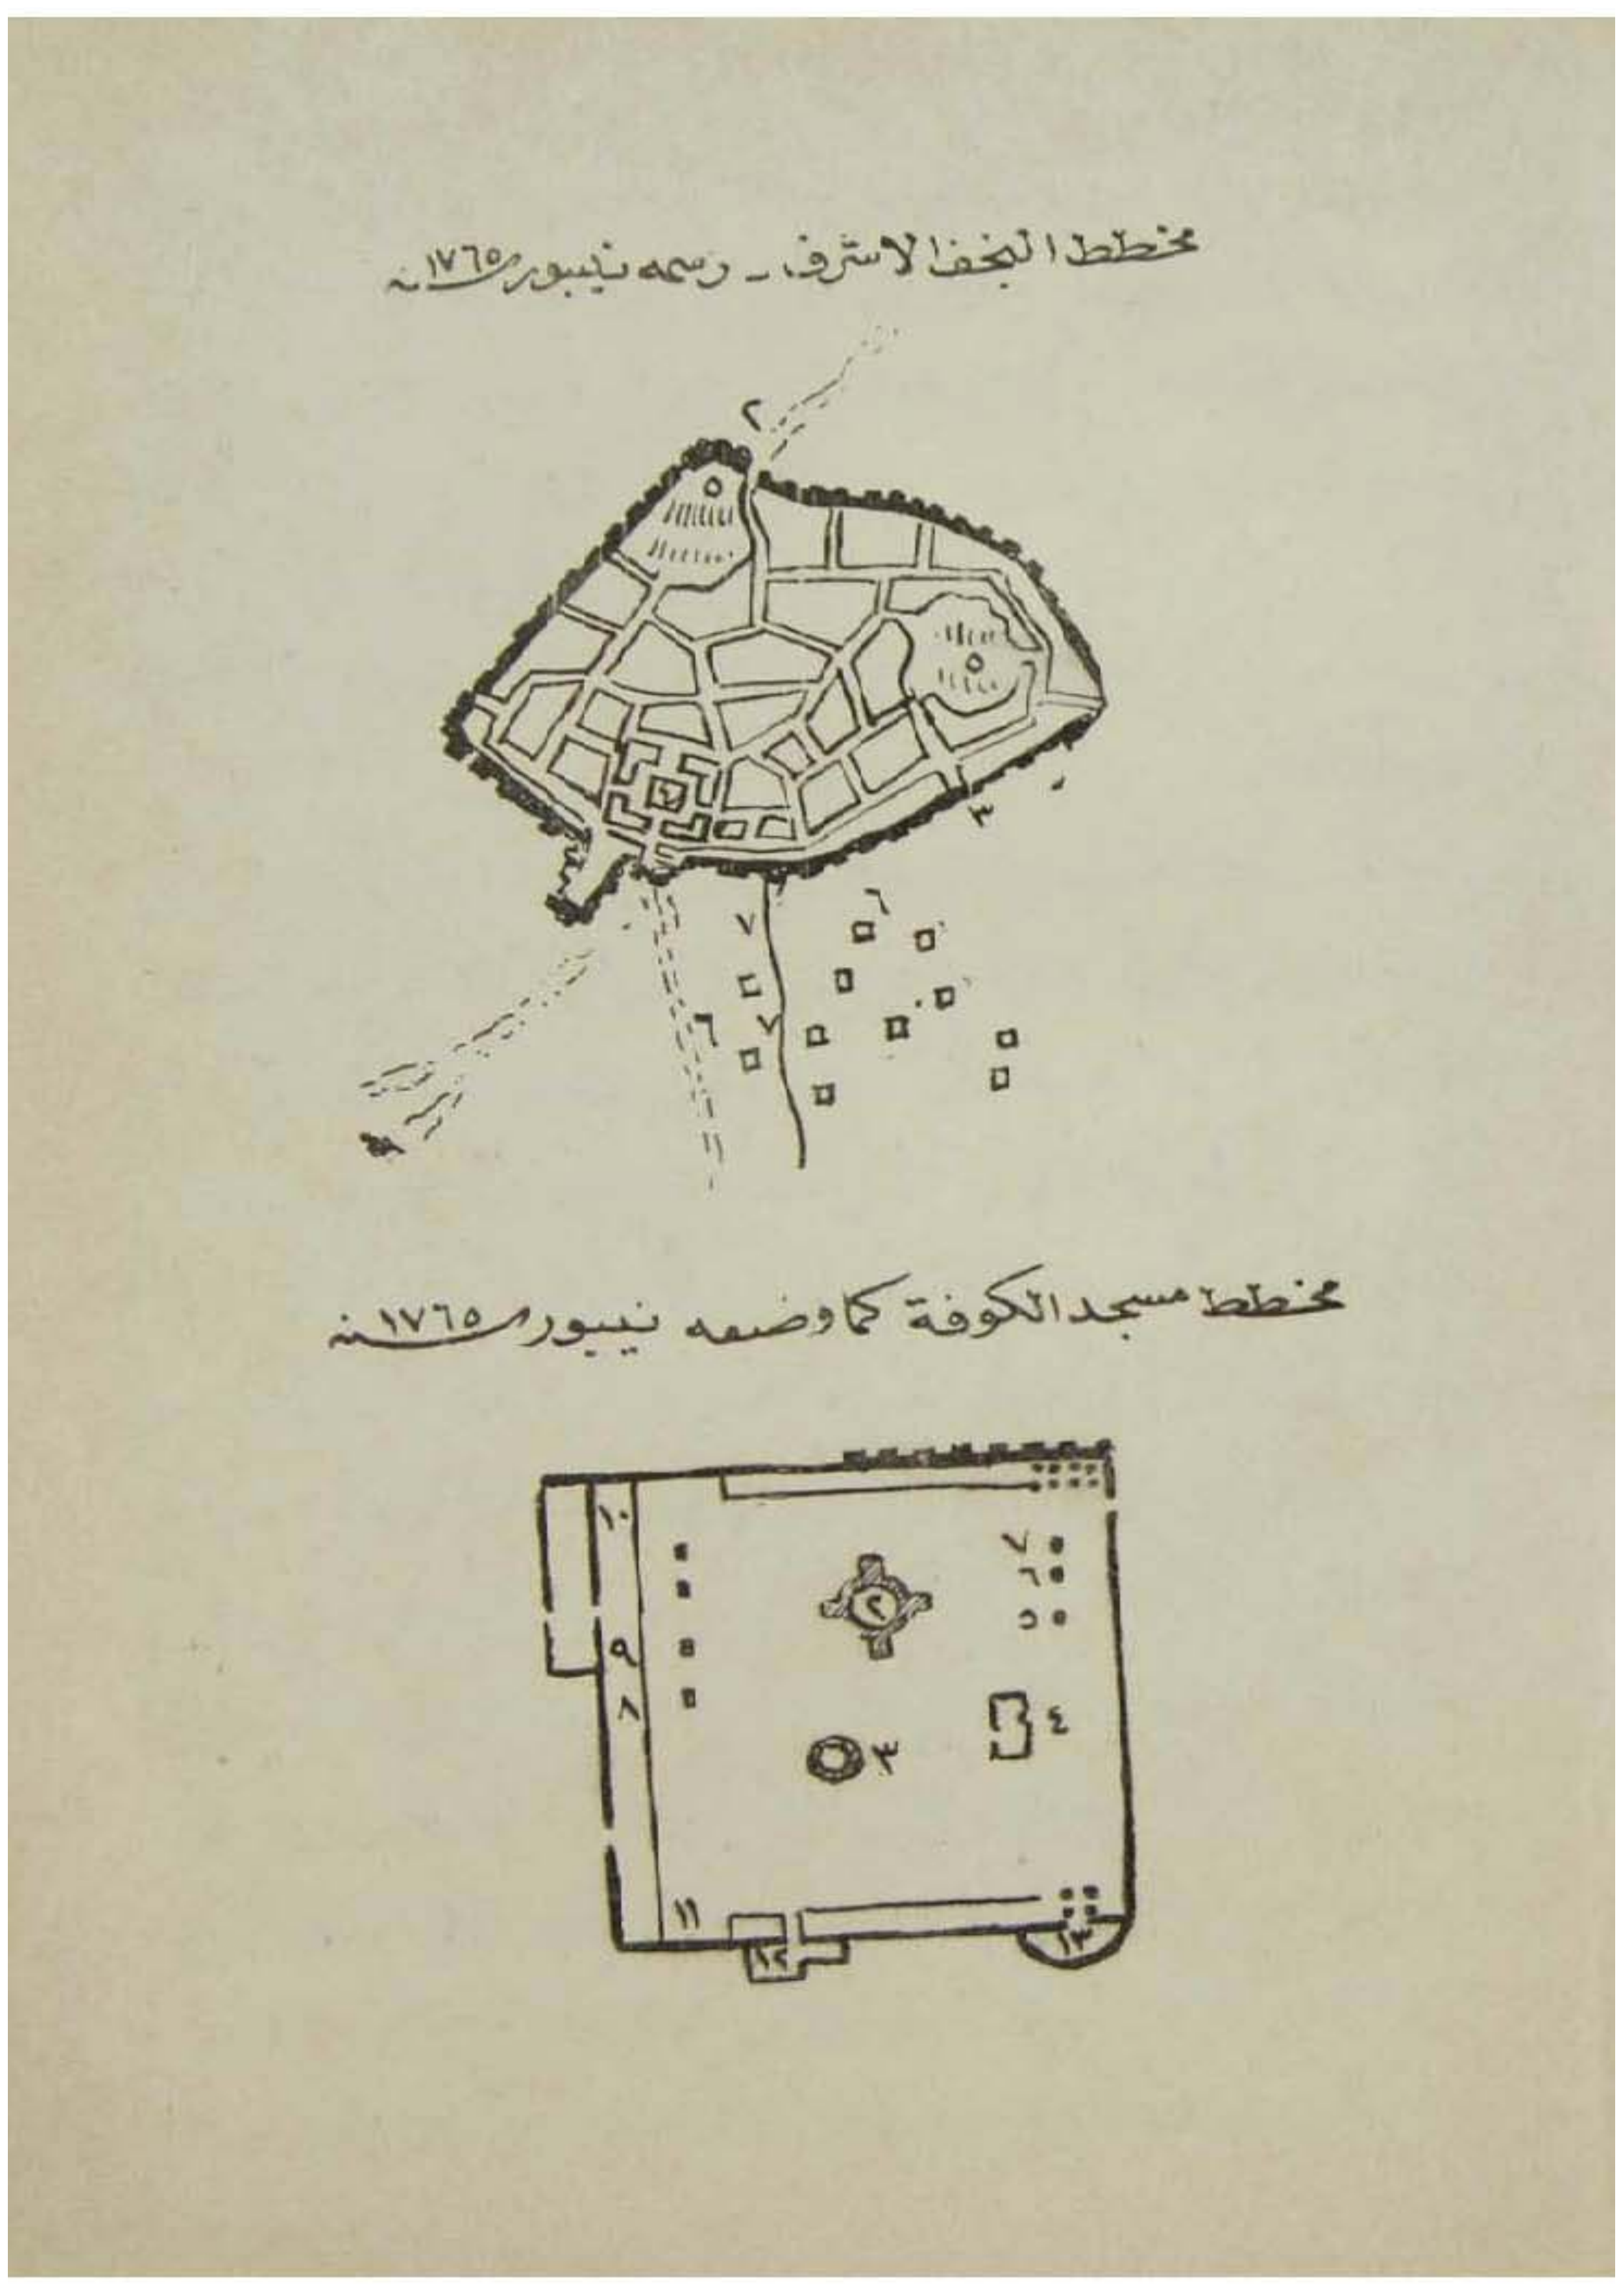 مخطط النجف الاشرف - رسمه نيبور سنة ١٧٦٥
٢
٥
٥
٣
٦
٧
٦
٧
مخطط مسجد الكوفة كما وضعه نيبور سنة ١٧٦٥
١٠
٧
٦
٢
٥
٩
٨
٤
٣
١١
١٢
١٣